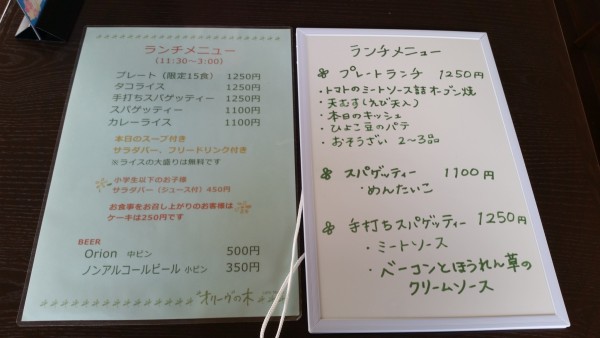 ランチメニュー
(11:30～3:00)
プレート (限定15食) 1250円
タコライス 1250円
手打ちスパゲッティー 1250円
スパゲッティー 1100円
カレーライス 1100円
本日のスープ付き
サラダバー、フリードリンク付き
※ライスの大盛りは無料です
小学生以下のお子様
サラダバー (ジュース付) 450円
お食事をお召し上がりのお客様は
ケーキは250円です
BEER
Orion 中ビン 500円
ノンアルコールビール 小ビン 350円
オリーヴの木
ランチメニュー
プレートランチ 1250円
・トマトのミートソース詰オーブン焼
・天むす(えび天入)
・本日のキッシュ
・ひよこ豆のパテ
・おそうざい 2～3品
スパゲッティー 1100円
・めんたいこ
手打ちスパゲッティー 1250円
・ミートソース
・ベーコンとほうれん草の
クリームソース